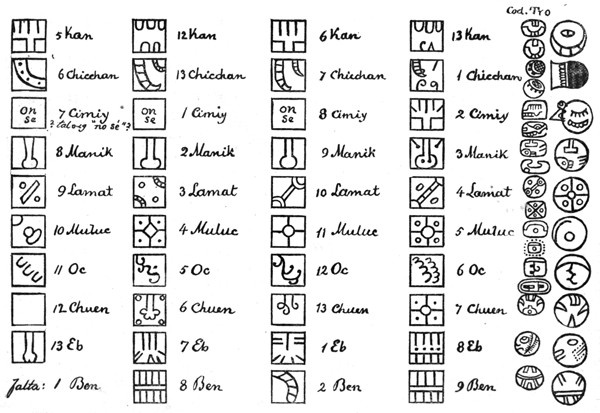 Cod. Tro
5 Kan 12 Kan 6 Kan 13 Kan
6 Chicchan 13 Chicchan 7 Chicchan 1 Chicchan
on se 7 Cimiy on se 1 Cimiy on se 8 Cimiy 2 Cimiy
no sé"?
8 Manik 2 Manik 9 Manik 3 Manik
9 Lamat 3 Lamat 10 Lamat 4 Lamat
10 Muluc 4 Muluc 11 Muluc 5 Muluc
11 Oc 5 Oc 12 Oc 6 Oc
12 Chuen 6 Chuen 13 Chuen 7 Chuen
13 Eb 7 Eb 1 Eb 8 Eb
Falta: 1 Ben 8 Ben 2 Ben 9 Ben